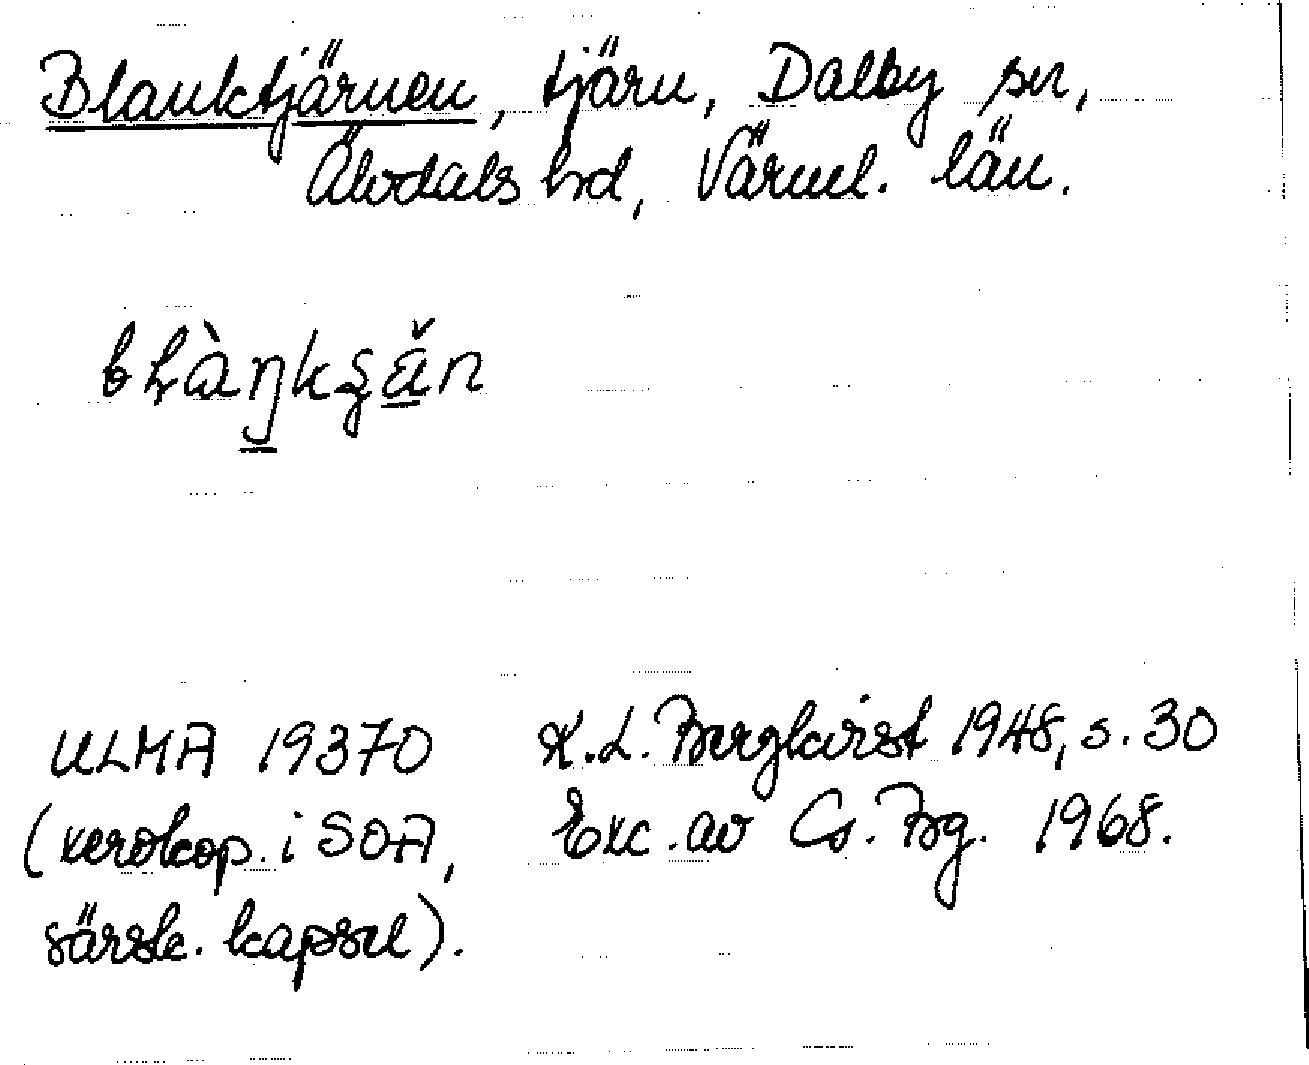 Blanktjärnen, tjärn, Dalby sn,
Älvdals hd, Värml. län.
ULMA 19370 K.L. Bergkvist 1948, s. 30
(xerokop. i SOA, Exc. av Cs. Bg. 1968.
särsk. kapsel).